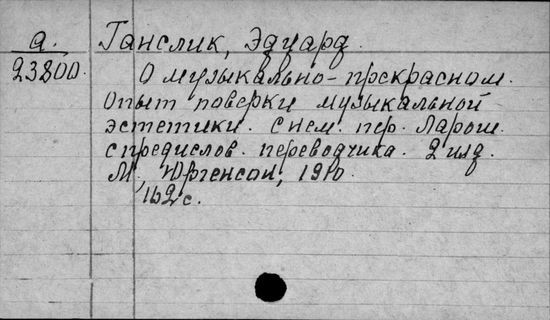 а. Ганслик, Эдуард.
23800. О музыкально-прекрасном.
Опыт поверки музыкальной
эстетики. С нем. пер. Ларош.
с предислов. переводчика. 2 изд.
М., Юргенсон, 1910.
162 с.